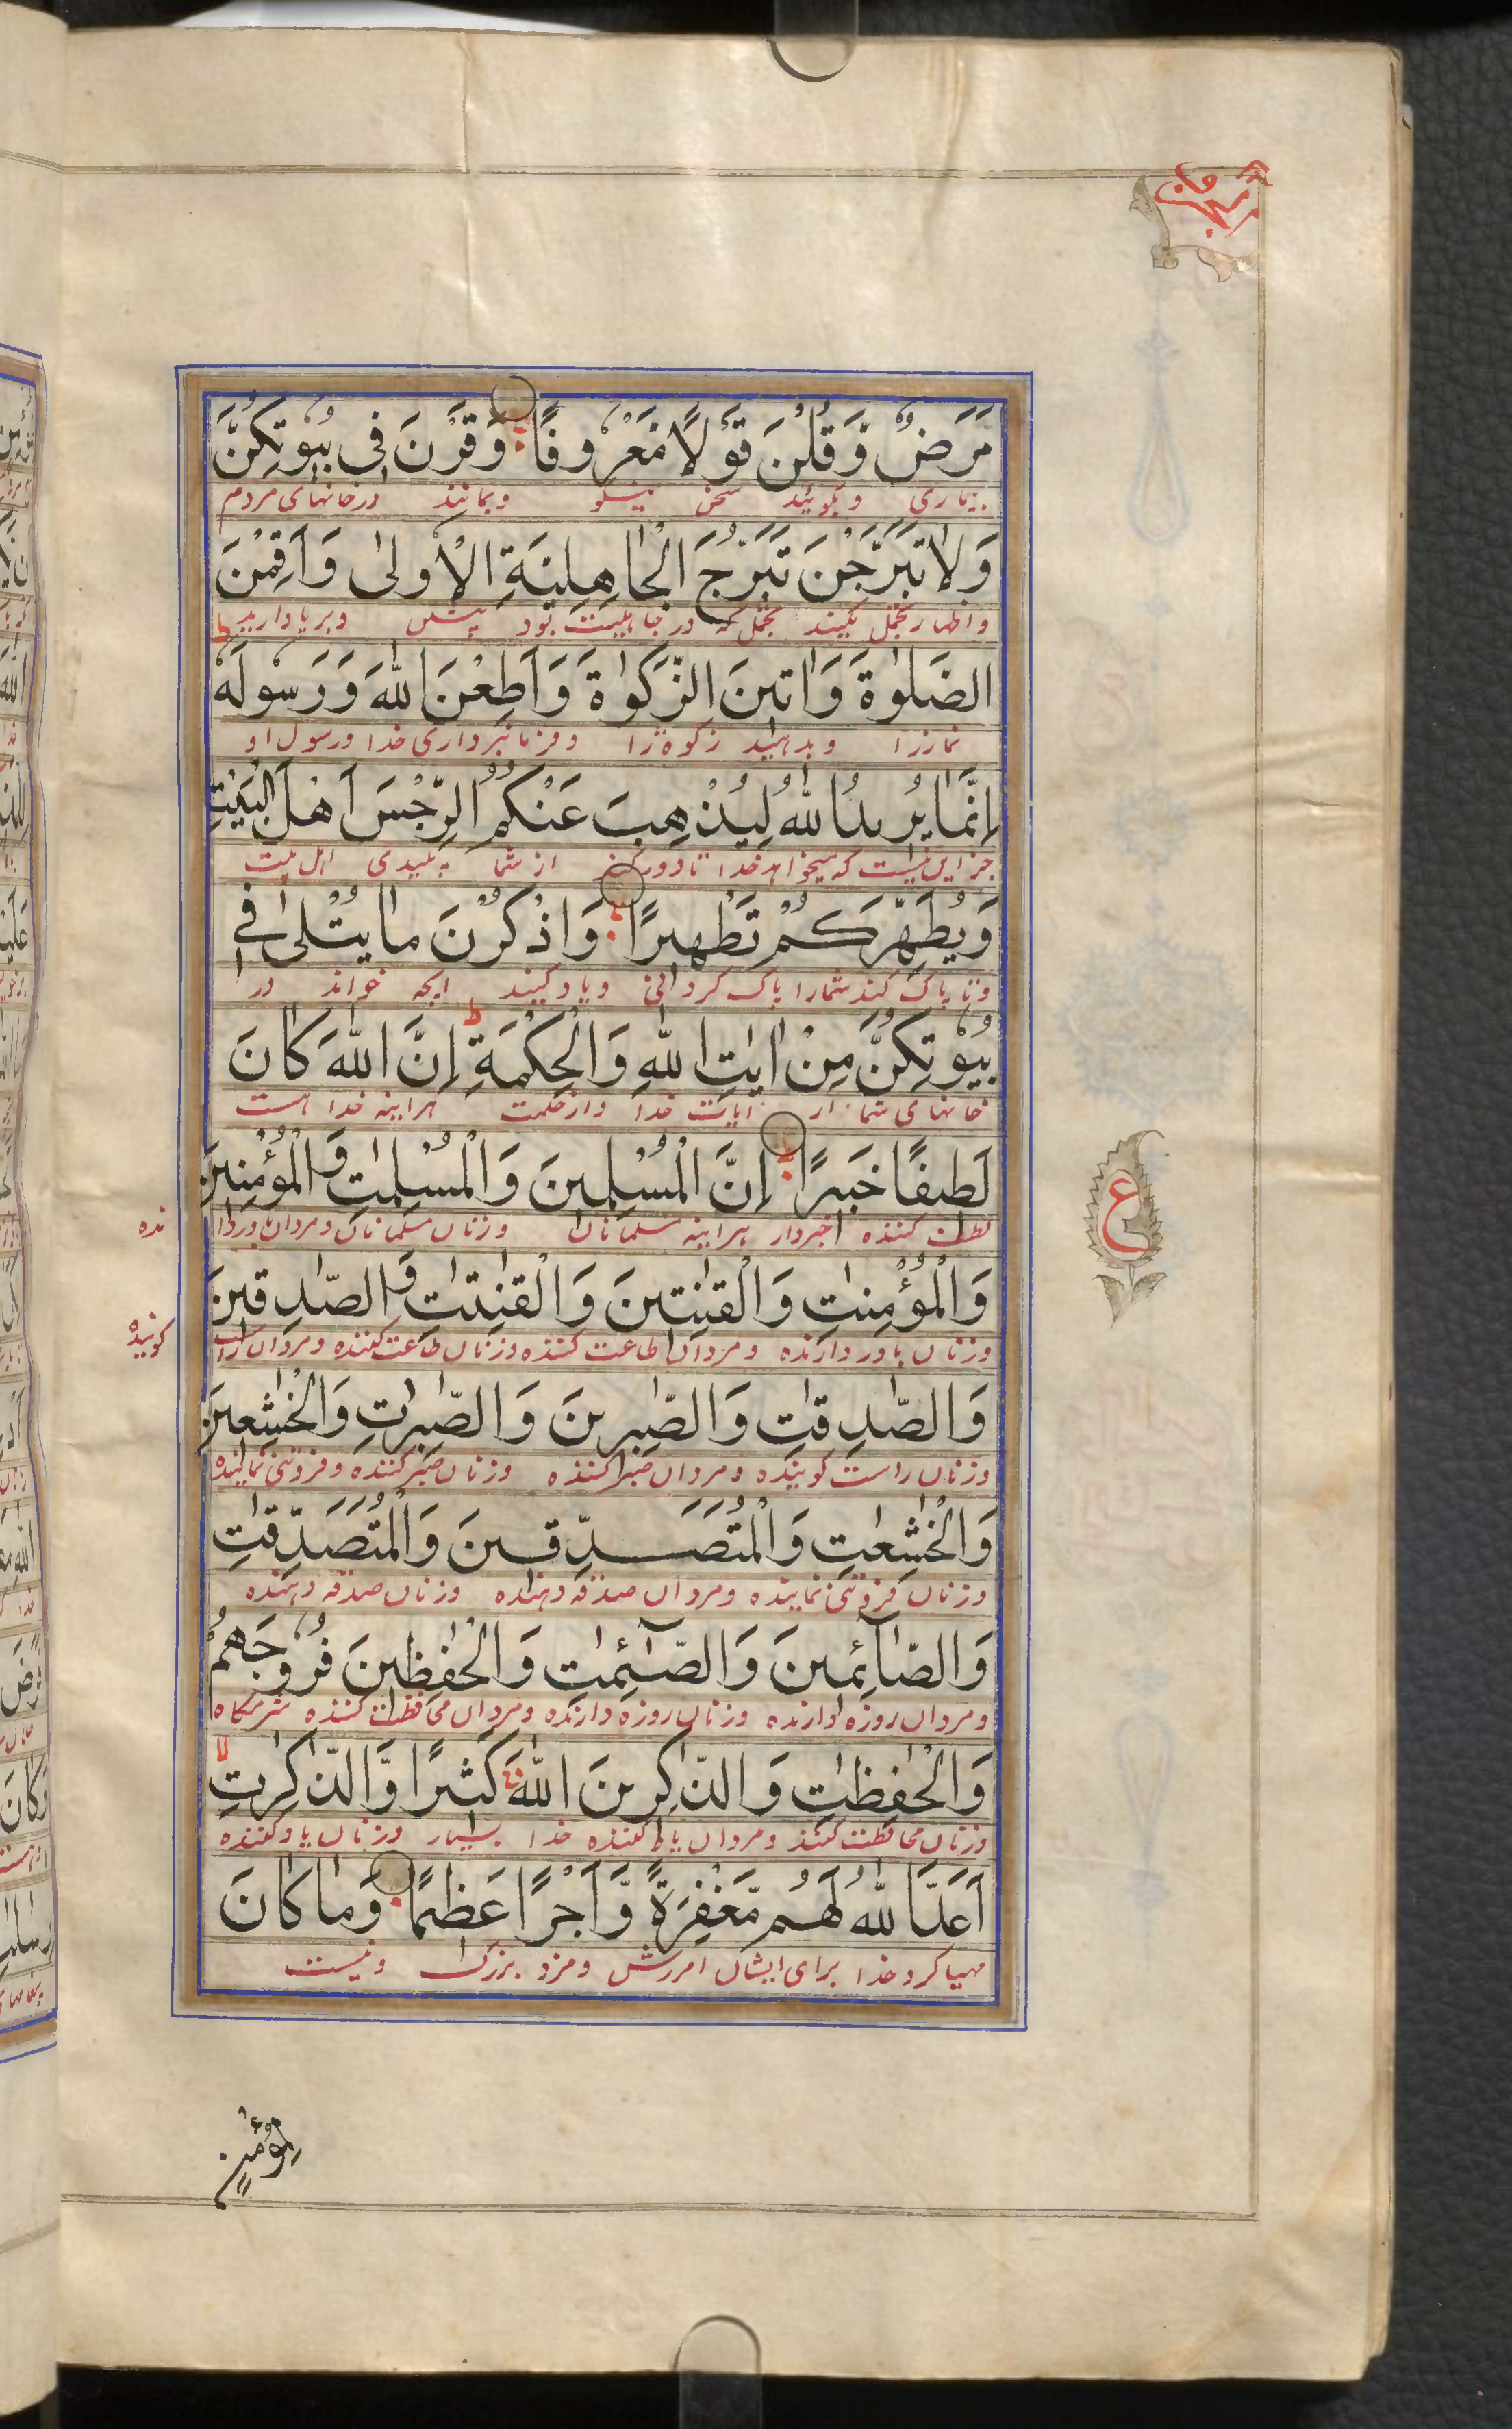 مَرَضٌ وَّقُلْنَ قَوْلًا مَّعْرُوفًا وَقَرْنَ فِي بُيُوتِكُنَّ
بیماری وبگوئید سخن نیکو وبمانند در خانهای مردم
وَلَا تَبَرَّجْنَ تَبَرُّجَ الْجَاهِلِيَّةِ الْأُولٰى وَاَقِمْنَ
واظهار تجمل نکنید تجمل که در جاهلیت بود پیش وبرپا دارید
الصَّلٰوةَ وَاٰتِينَ الزَّكٰوةَ وَاَطِعْنَ اللّٰهَ وَرَسُولَهُ ط
نماز را وبدهید زکوة را وفرمانبرداری خدا ورسول او
اِنَّمَا يُرِيدُ اللّٰهُ لِيُذْهِبَ عَنْكُمُ الرِّجْسَ اَهْلَ الْبَيْتِ
جز این نیست که میخواهد خدا تا دور کند از شما پلیدی اهل بیت
وَيُطَهِّرَكُمْ تَطْهِيرًا وَاذْكُرْنَ مَا يُتْلٰى فِي
وتا پاک کند شما را پاک کردانی ویاد کنید انچه خواند در
بُيُوتِكُنَّ مِنْ اٰيٰتِ اللّٰهِ وَالْحِكْمَةِ ط اِنَّ اللّٰهَ كَانَ
خانهای شما از ایات خدا واز حکمت هراینه خدا هست
لَطِيفًا خَبِيرًا اِنَّ الْمُسْلِمِينَ وَالْمُسْلِمٰتِ وَالْمُؤْمِنِينَ
لطف کننده خبردار هراینه مسلمانان وزنان مسلمانان ومردان باوردا
رنده
وَالْمُؤْمِنٰتِ وَالْقٰنِتِينَ وَالْقٰنِتٰتِ وَالصّٰدِقِينَ
وزنان باور دارنده ومردان طاعت کننده وزنان طاعت کننده ومردان راست
کوینده
وَالصّٰدِقٰتِ وَالصّٰبِرِينَ وَالصّٰبِرٰتِ وَالْخٰشِعِينَ
وزنان راست کوینده ومردان صبر کننده وزنان صبر کننده وفروتنی نماینده
وَالْخٰشِعٰتِ وَالْمُتَصَدِّقِينَ وَالْمُتَصَدِّقٰتِ
وزنان فروتنی نماینده ومردان صدقه دهنده وزنان صدقه دهنده
وَالصَّآئِمِينَ وَالصّٰٓئِمٰتِ وَالْحٰفِظِينَ فُرُوجَهُمْ
ومردان روزه دارنده وزنان روزه دارنده ومردان محافظت کننده شرمگاه
وَالْحٰفِظٰتِ وَالذّٰكِرِينَ اللّٰهَ كَثِيرًا وَّالذّٰكِرٰتِ لا
وزنان محافظت کنند ومردان یاد کننده خدا بسیار وزنان یاد کننده
اَعَدَّ اللّٰهُ لَهُم مَّغْفِرَةً وَّاَجْرًا عَظِيمًا وَمَا كَانَ
مهیا کرد خدا برای ایشان امرزش ومزد بزرک ونیست
ع
لِمُؤْمِنٍ